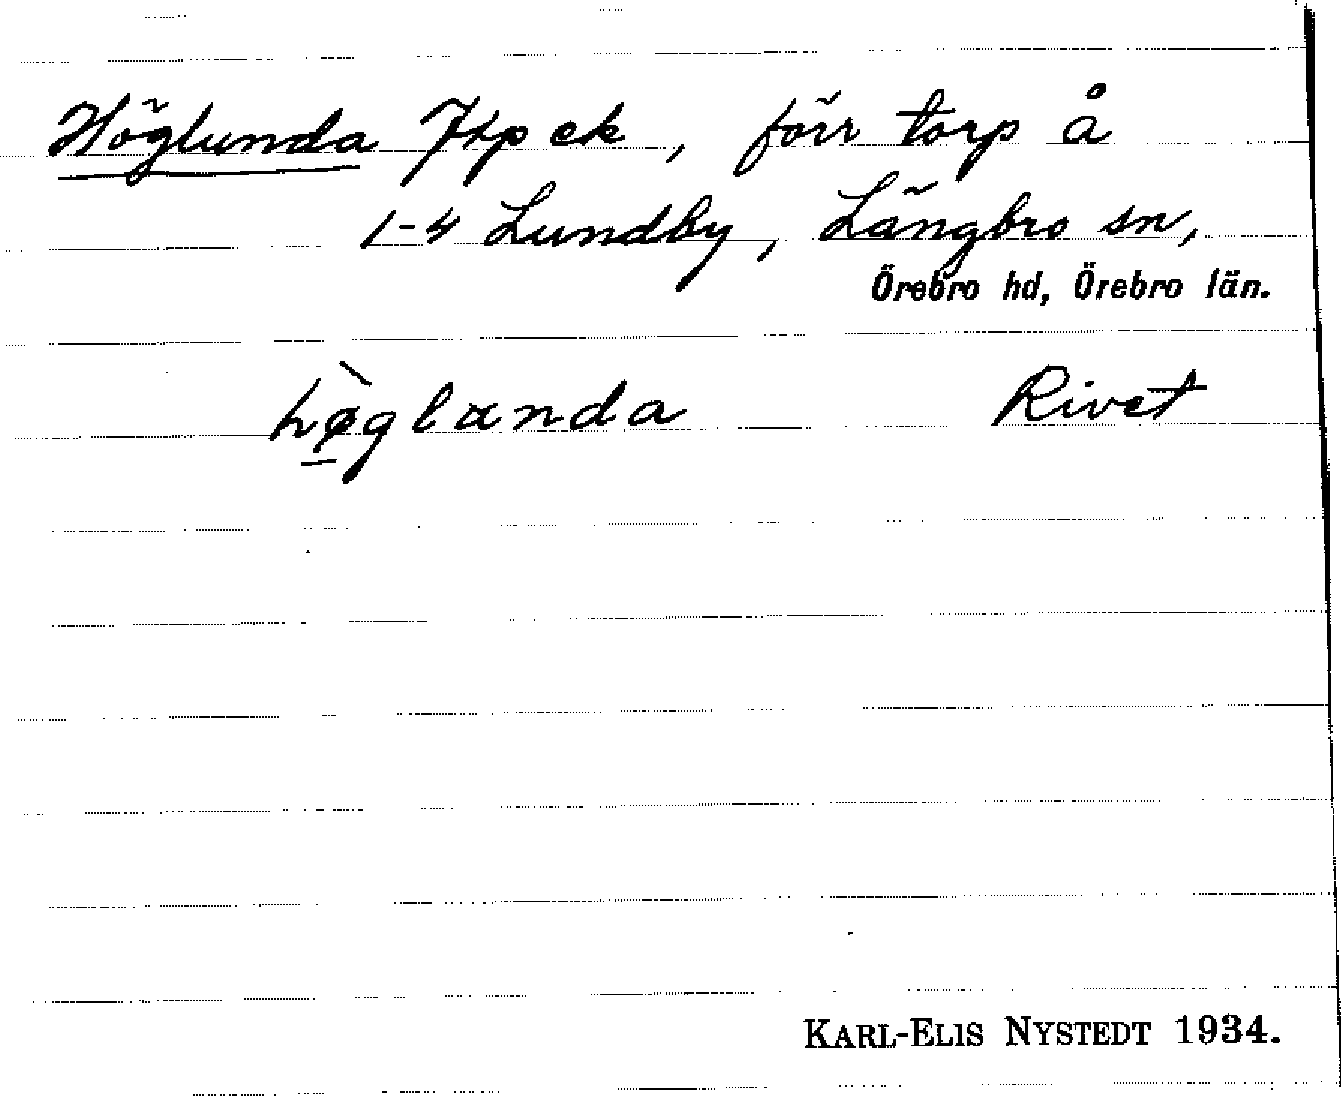 Höglunda Jtp ek, förr torp å
1-4 Lundby, Längbro sn,
Örebro hd, Örebro län.
hø̀glanda Rivet
KARL-ELIS NYSTEDT 1934.